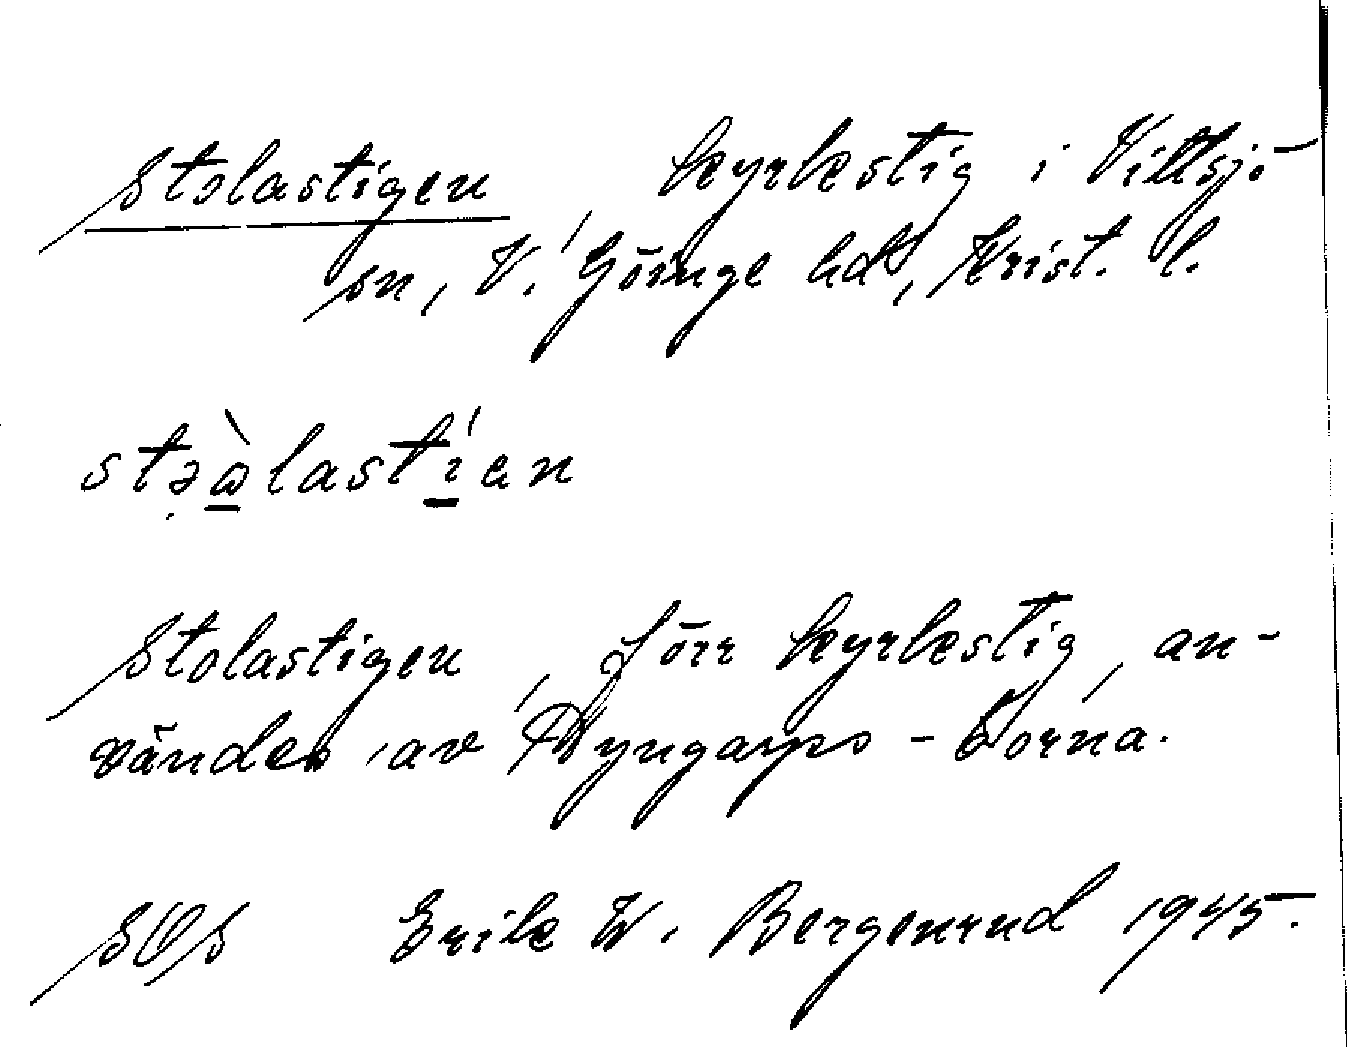 Stolastigen, kyrkstig i Vittsjö
sn, V. Göinge hd, Krist. l.
stəὼlastí̱en
Stolastigen, förr kyrkstig, an-
vändes av Pyngarps-borna.
SOS Erik W. Bergenrud 1945.